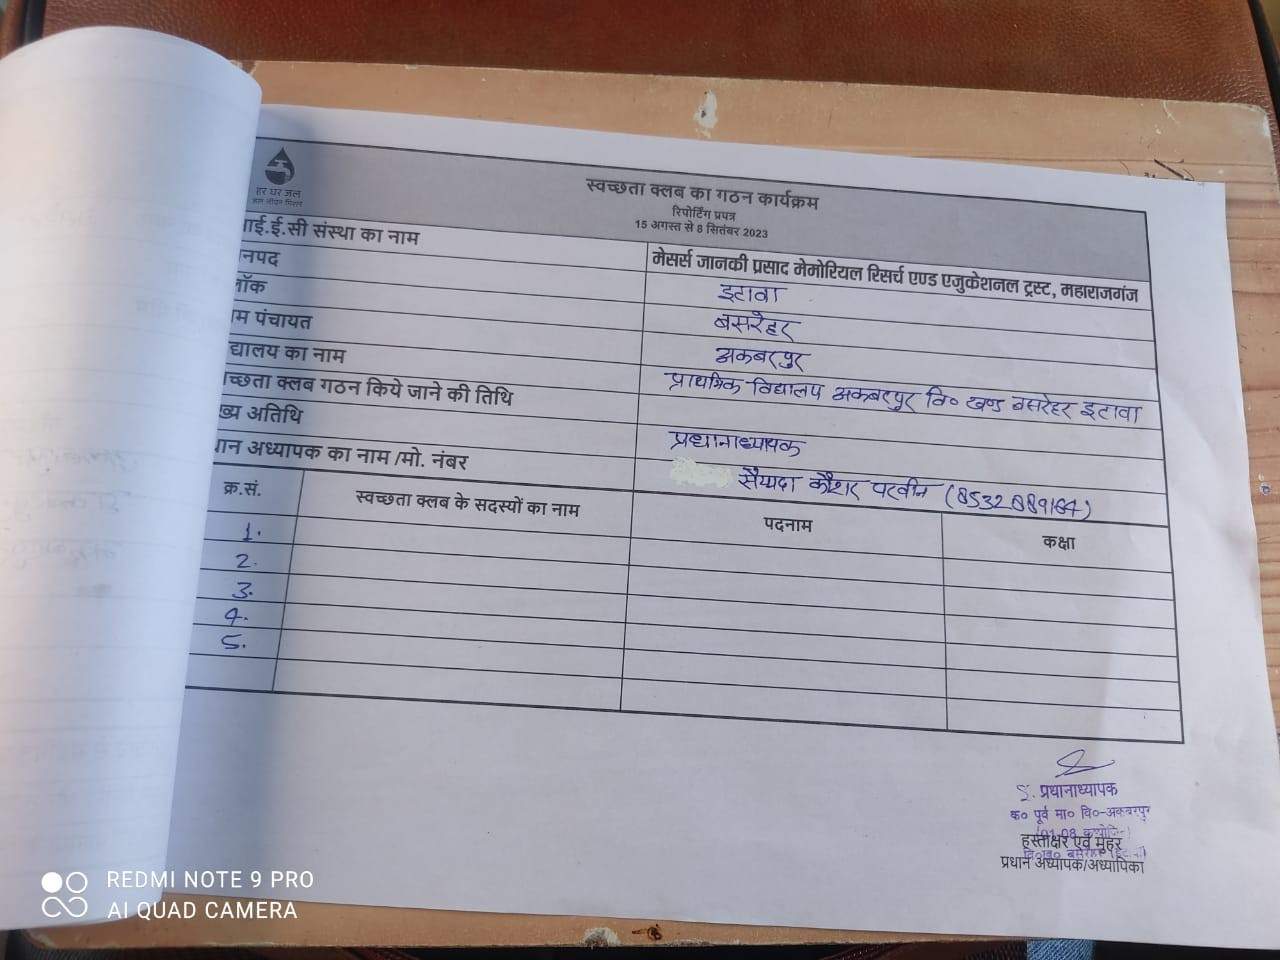 हर घर जल
जल जीवन मिशन
स्वच्छता क्लब का गठन कार्यक्रम
रिपोर्टिंग प्रपत्र
15 अगस्त से 8 सितंबर 2023
आई.ई.सी संस्था का नाम
मेसर्स जानकी प्रसाद मेमोरियल रिसर्च एण्ड एजुकेशनल ट्रस्ट, महाराजगंज
नपद
इटावा
लॉक
बसरेहर
म पंचायत
अकबरपुर
द्यालय का नाम
प्राथमिक विद्यालय अकबरपुर वि० खण्ड बसरेहर इटावा
च्छता क्लब गठन किये जाने की तिथि
ख्य अतिथि
प्रधानाध्यापक
धान अध्यापक का नाम /मो. नंबर
सैय्यदा कौशर परवीन
क्र.सं.
स्वच्छता क्लब के सदस्यों का नाम
पदनाम
कक्षा
1.
2.
3.
4.
5.
इ. प्रधानाध्यापक
क० पूर्व मा० वि०-अकबरपुर
हस्ताक्षर एवं मुहर
प्रधान अध्यापक/अध्यापिका
REDMI NOTE 9 PRO
AI QUAD CAMERA